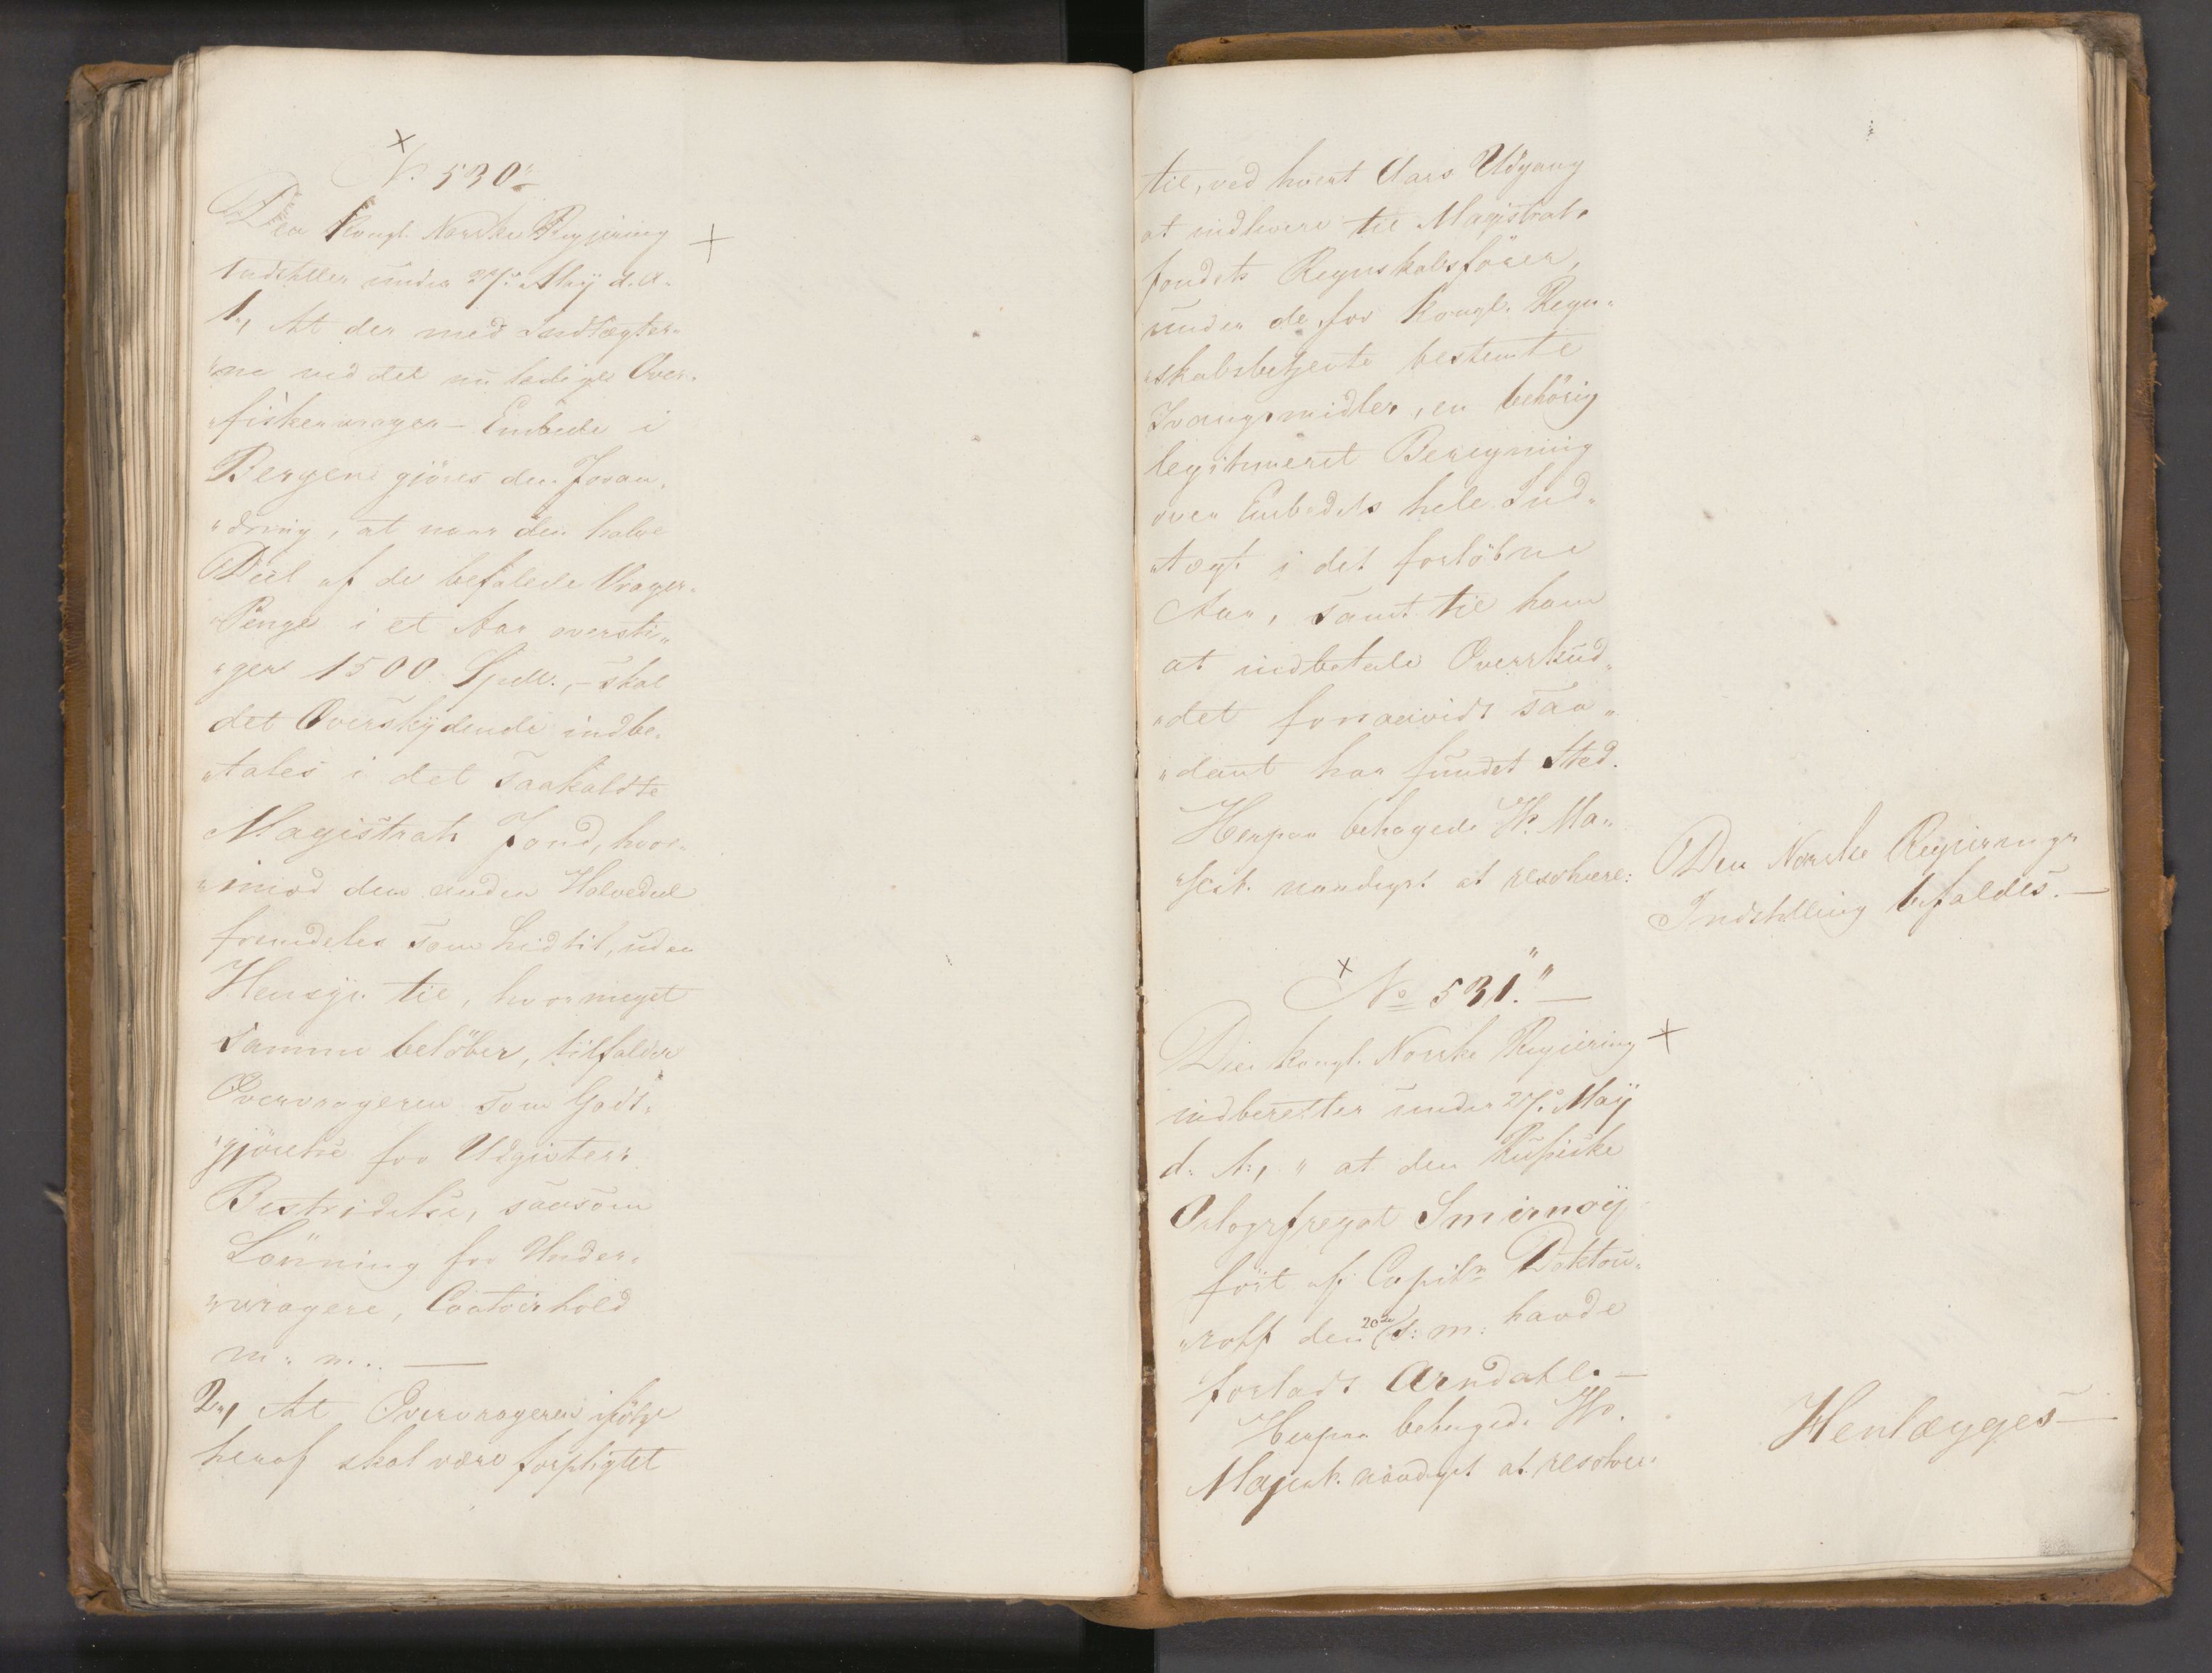 No 530"
Den kongl. Norske Regjering
Indstiller under 27de Maÿ d. A.
1, At der med Indtægter„
„ne ved det nu ledige Over„
„fiskevrager-Embede i
Bergen gjöres den Foran„
„dring, at naar den halve
Deel af de befalede Vrager„
„Penge i et Aar oversti„
„ger 1500 Spdl., - skal
det Overskÿdende indbe„
„tales i det saakaldte
Magistrats Fond, hvor„
„imod den anden Halvedeel
fremdeles som hidtil, uden
Hensÿn til, hvormeget
samme belöber, tilfalder
Overvrageren som Godt„
„gjörelse for Udgivters
Bestridelse, saasom
Lönning for Under„
„vragere, Contoirhold
m: m:. —
2, At Overvrageren ifölge
heraf skal være forpligtet
til, ved hvert Aars Udgang
at indlevere til Magistrats
fondets Regnskabsförer,
under de for kongl. Regn„
„skabsbetjente bestemte
Tvangsmidler, en behörig
legitimeret Beregning
over Embedets hele Ind„
„tægt i det forlöbne
Aar, samt til ham
at indbetale Overskud„
„det forsaavidt saa„
„dant har fundet Sted.
Herpaa behagede Hs. Ma„
„jest. naadigst at resolvere:
Den Norske Regjerings
Indstilling befaldes. —
No 531." —
Den kongl. Norske Regiering
indberetter under 27de Maÿ
d: A:, " at den Russiske
Orlogsfregat Smirnoÿ
fört af Capitn Doktou„
„roff den 20de d: m: havde
forladt Arndahl. —
Herpaa behagede Hs.
Majest. naadigst at resolvere
Henlægges —